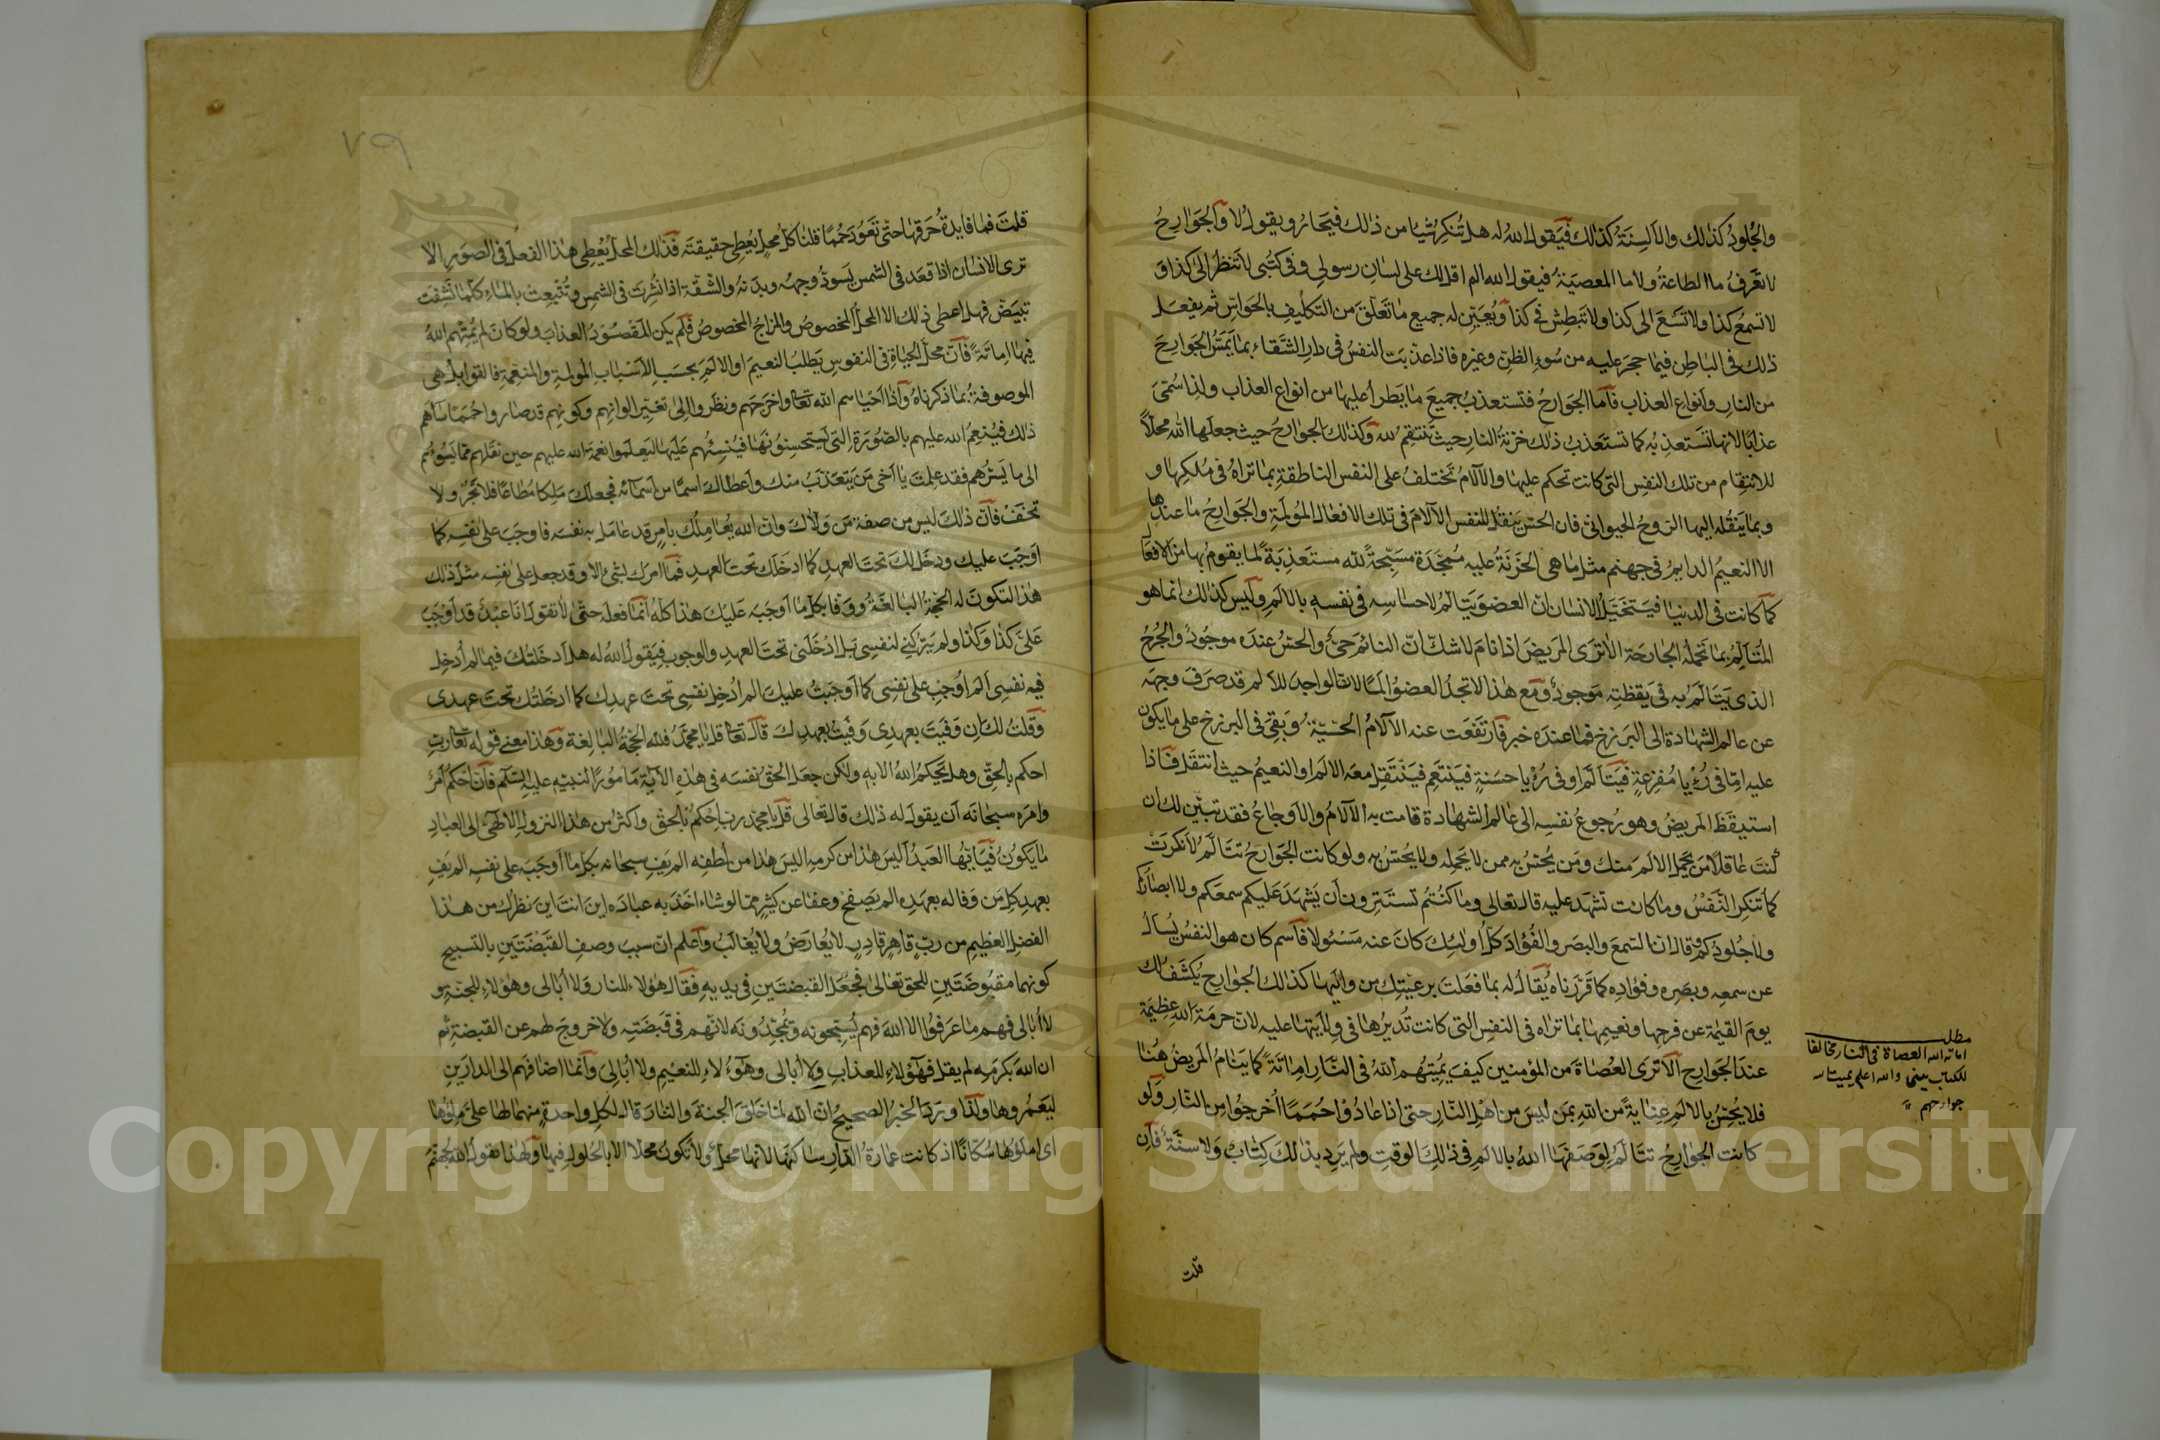 والجلود كذلك والالسنة كذلك فيقول الله له هل تنكر شيا من ذالك فيحار ويقول لا والجوارح
لا تعرف ما الطاعة ولا ما المعصية فيقول الله الم اقل لك على لسان رسولي وفي كتبي لا تنظر الى كذا و
لا تسمع كذا ولا تسع الى كذا ولا تبطش في كذا ويعين له جميع ما تعلق من التكليف بالحواس ثم يفعل
ذلك في الباطن فيما حجر عليه من سوء الظن وغيره فاذا عذبت النفس في دار الشقاء بما يمس الجوارح
من النار وانواع العذاب فاما الجوارح فتستعذب جميع ما يطرأ عليها من انواع العذاب ولذا سمي
عذابا لانها تستعذبه كما تستعذب ذلك خزنة النار حيث تنتقم لله وكذلك الجوارح حيث جعلها الله محلا
للانتقام من تلك النفس التي كانت تحكم عليها والآلام تختلف على النفس الناطقة بما تراه في ملكها و
وبما ينقله اليها الروح الحيواني فان الحس ينقل للنفس الآلام في تلك الافعال المولمة والجوارح ما عندها
الا النعيم الدايم في جهنم مثل ما هي الخزنة عليه ممجدة مسبحة لله مستعذبة لما يقوم بها من الافعال
كما كانت في الدنيا فيتخيل الانسان ان العضو يتالم لاحساسه في نفسه بالالم وليس كذلك انما هو
المتالم بما تحمله الجارحة الا ترى المريض اذا نام لا شك ان النائم حي والحس عنده موجود والجرح
الذي يتالم به في يقظته موجود ومع هذا لا تجد العضو الما لان الواجد للالم قد صرف وجهه
عن عالم الشهادة الى البرزخ فما عنده خبر فارتفعت عنه الآلام الحسية وبقي في البرزخ على ما يكون
عليه اما في رؤيا مفزعة فيتالم او في رؤيا حسنة فيتنعم فينتقل معه الالم او النعيم حيث انتقل فاذا
استيقظ المريض وهو رجوع نفسه الى عالم الشهادة قامت به الآلام والاوجاع فقد تبين لك ان
كنت عاقلا من يحمل الالم منك ومن يحس به ممن لا يحمله ولا يحس به ولو كانت الجوارح تتالم لانكرت
كما تنكر النفس وما كانت تشهد عليه قال تعالى وما كنتم تستترون ان يشهد عليكم سمعكم ولا ابصاركم
ولا جلودكم وقال ان السمع والبصر والفؤاد كل اولئك كان عنه مسئولا فاسم كان هو النفس يسال
عن سمعه وبصره وفؤاده كما قررناه يقال له بما فعلت برعيتك من واليها كذلك الجوارح يكشف لك
يوم القيمة عن فرحها ونعيمها بما تراه في النفس التي كانت تديرها في ولايتها عليه لان حرمة الله عظيمة
عند الجوارح الا ترى العصاة من المؤمنين كيف يميتهم الله في النار اماتة كما ينام المريض هنا
فلا يحس بالالم عناية من الله بمن ليس من اهل النار حتى اذا عادوا حمما اخرجوا من النار ولو
كانت الجوارح تتالم لوصفها الله بالالم في ذلك الوقت ولم يرد بذلك كتاب ولا سنة فان
قلت
مطلب
اماته الله العصاة في النار مخالفا
للكتاب يعني والله اعلم يميت الله
جوارحهم
٧٩
قلت فما فايدة حرقها حتى تعود حمما قلنا كل محل يعطي حقيقته فذلك المحل يعطي هذا الفعل في الصور الا
ترى الانسان اذا قعد في الشمس يسود وجهه وبدنه والشقة اذا نشرت في الشمس وتتبعت بالماء كلما نشفت
تبيض فهل اعطى ذلك الا المحل المخصوص والمزاج المخصوص فلم يكن المقصود العذاب ولو كان لم يمتهم الله
فيها اماتة فان محل الحياة في النفوس يطلب النعيم او الالم بحسب الاسباب المولمة والمنعمة فالقوابل هي
الموصوفة بما ذكرناه واذا احياهم الله تعالى واخرجهم ونظروا الى تغيير الوانهم وكونهم قد صاروا حمما ساءهم
ذلك فينعم الله عليهم بالصورة التي يستحسنونها فينشئهم عليها ليعلموا نعمة الله عليهم حين نقلهم مما يسوءهم
الى ما يسرهم فقد علمت يا اخي من يتعذب منك واعطاك اسما من اسمائه فجعلك ملكا مطاعا فلا تجر ولا
تحف فان ذلك ليس من صفة من ولاك وان الله يعاملك بامر قد عامل به نفسه فاوجب على نفسه كما
اوجب عليك ودخل لك تحت العهد كما ادخلك تحت العهد فما امرك بشئ الا وقد جعل على نفسه مثل ذلك
هذا لتكون له الحجة البالغة ووفا بكل ما اوجبه عليك هذا كله انما فعله حتى لا تقول انا عبد قد اوجب
علي كذا وكذا ولم يتركني لنفسي بل ادخلني تحت العهد والوجوب فيقول الله له هل ادخلتك فيما لم ادخل
فيه نفسي الم اوجب على نفسي كما اوجبت عليك الم ادخل نفسي تحت عهدك كما ادخلتك تحت عهدي
وقلت لك ان وفيت بعهدي وفيت بعهدك قال تعالى قل يا محمد فلله الحجة البالغة وهذا معنى قوله تعالى رب
احكم بالحق وهل يحكم الله الا به ولكن جعل الحق نفسه في هذه الآية مامورا لنبيه عليه السلام فان احكم امر
وامره سبحانه ان يقول له ذلك قال تعالى قل يا محمد رب احكم بالحق واكثر من هذا النزول الالهي الى العباد
ما يكون فيا ايها العبد اليس هذا من كرمه اليس هذا من لطفه الم يف سبحانه بكل ما اوجبه على نفسه الم يف
بعهد كل من وفا له بعهده الم يصفح وعفا عن كثير مما لو شاء اخذ به عباده اين انت اين نظرك من هذا
الفضل العظيم من رب قاهر قادر لا يعارض ولا يغالب واعلم ان سبب وصف القبضتين بالتسبيح
كونهما مقبوضتين للحق تعالى فجعل القبضتين في يديه فقال هؤلاء للنار ولا ابالي وهؤلاء للجنة و
لا ابالي فهم ما عرفوا الا الله فهم يسبحونه ويمجدونه لانهم في قبضته ولا خروج لهم عن القبضة ثم
ان الله بكرمه لم يقل فهؤلاء للعذاب ولا ابالي وهؤلاء للنعيم ولا ابالي وانما اضافهم الى الدارين
ليعمروها ولذا ورد الخبر الصحيح ان الله لما خلق الجنة والنار قال لكل واحدة منهما لها علي ملؤها
اي املؤها سكانا اذ كانت عمارة الدار ساكنها لانها محل ولا تكون محلا الا بالحلول فيها ولهذا تقول الله لجهنم
Copyright © King Saud University